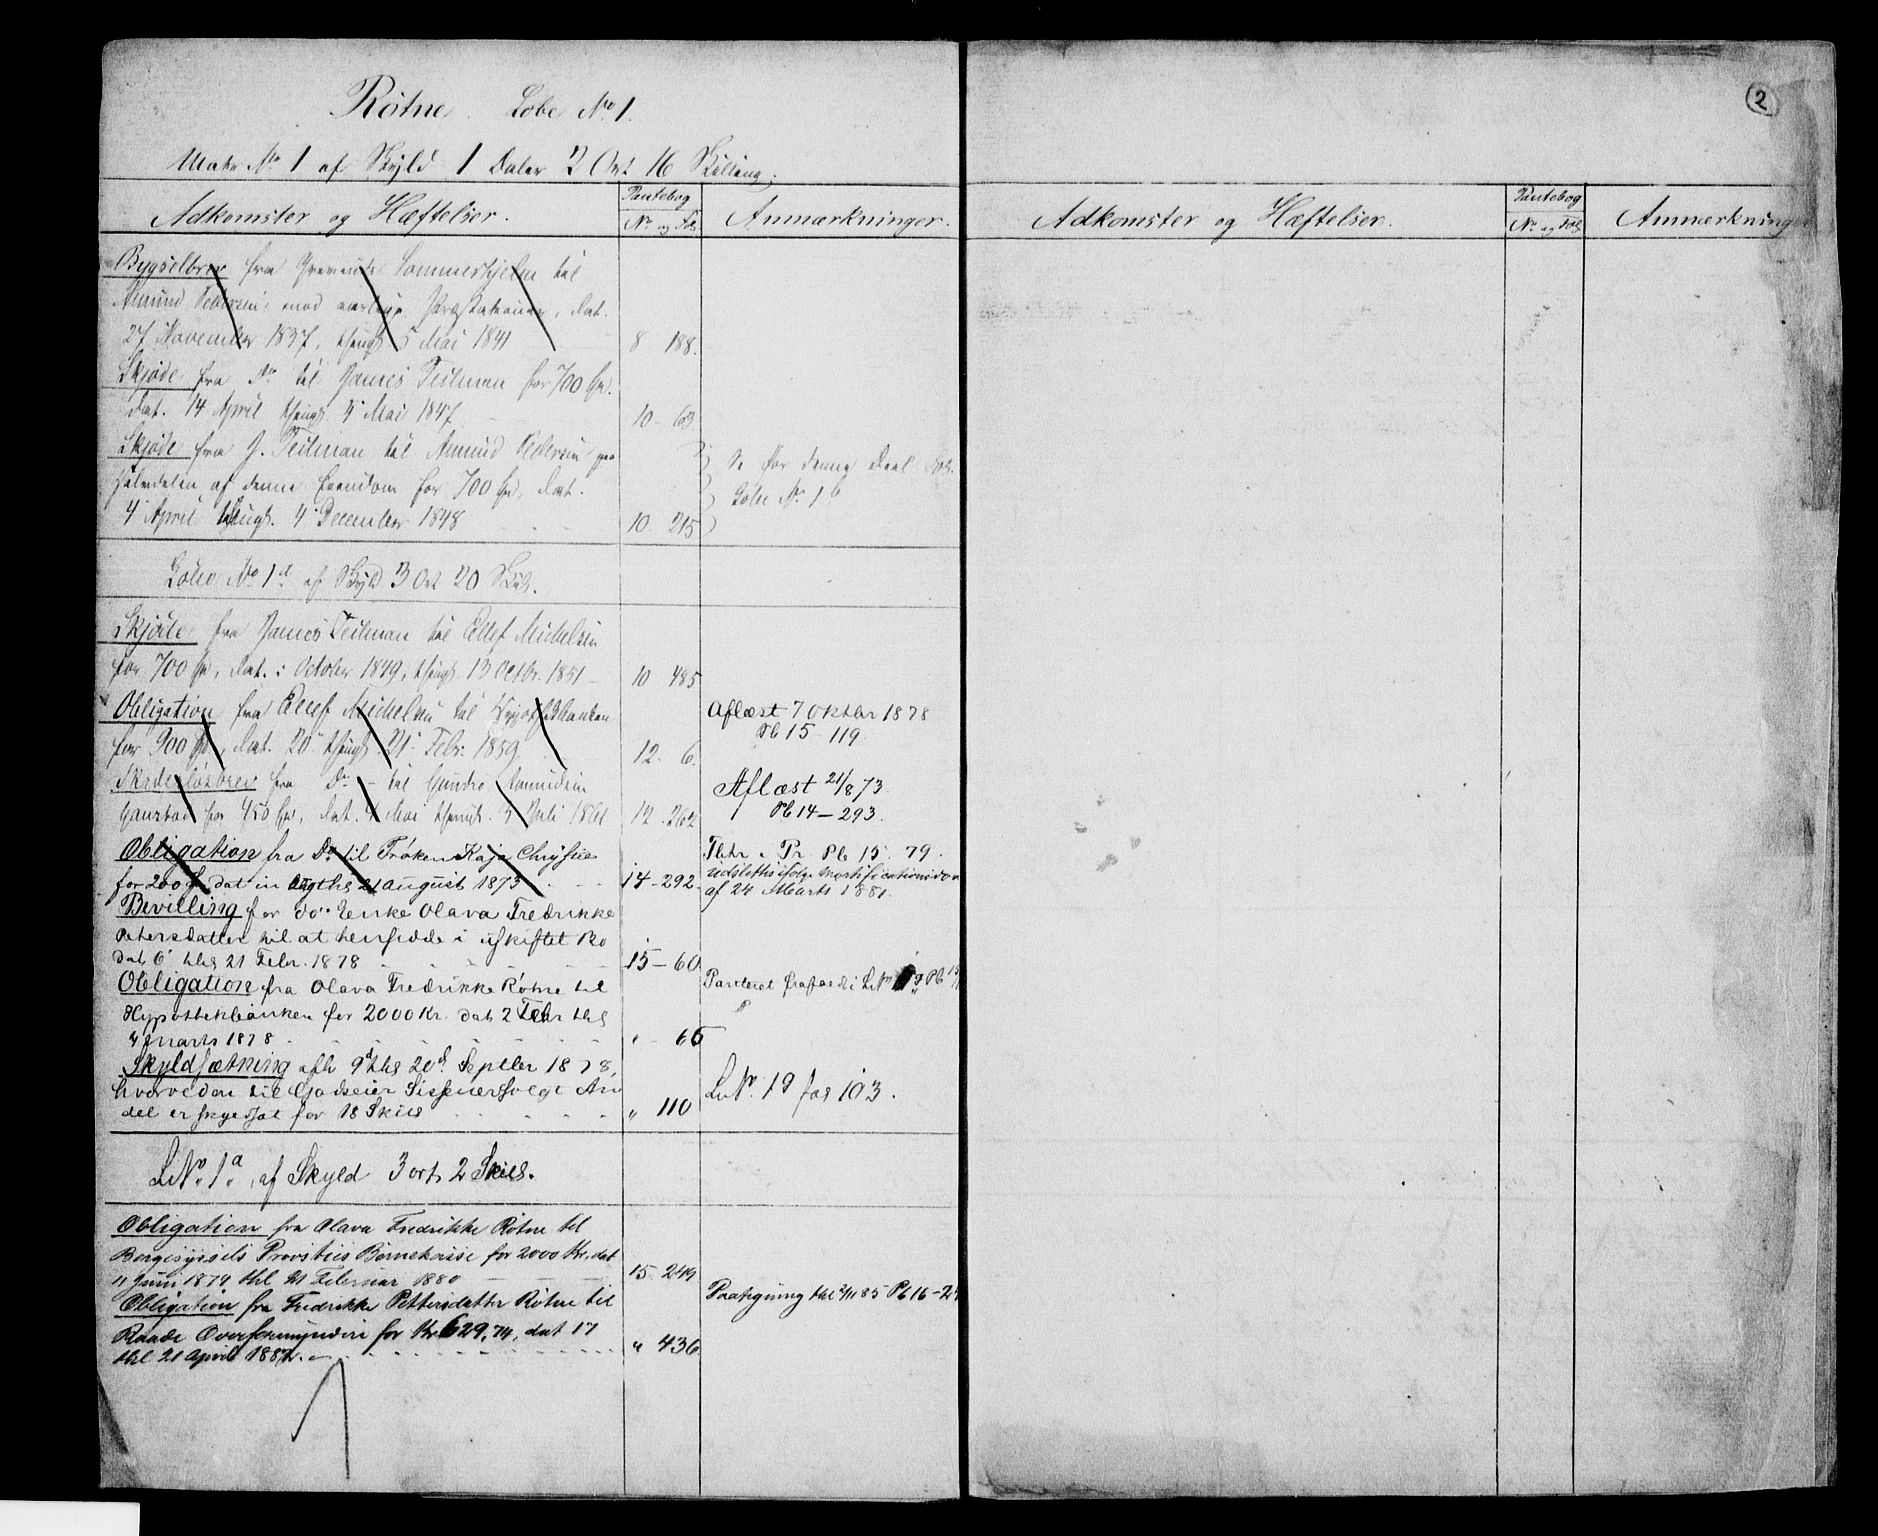 Rötne. Löbe No 1.
Matr No 1 af Skyld 1 Daler 2 Ort 16 Skilling.
Adkomster og Hæftelser.
Pantebog
No og Fol.
Anmærkninger.
Bygselbrev fra Grevinde til
Amund Pedersen mod aarlige Præstationer, dat.
27 November 1837, thingl. 5 Mai 1841
8 188.
Skjöde fra Do til James Teilman for 700 Spd.
dat. 14 April thingl. 4 Mai 1847
10 63
Skjöde fra J. Teilman til Amund Pedersen paa
Halvdelen af denne Eiendom for 700 Spd, dat.
4 April thingl. 4 December 1848
10 215
Se for denne Deel Fol.
Löbe No 1 b
Löbe No 1 d af Skyld 3 Ort 20 Skil.
Skjöde fra James Teilman til Ellef Michelsen
for 700 Spd, dat. i October 1849, thingl. 13 Octbr. 1851
10 485
Obligation fra Ellef Michelsen til Hypothekbanken
for 900 Spd, dat. 20 thingl. 21 Febr. 1859
12. 6.
Aflæst 7 Oktbr 1878
Pb 15 119.
Skadesløsbrev fra Do til Gundro Amundsen
Gaustad for 450 Spd, dat. Mai thingl. 5 Juli 1861
12. 262
Aflæst 21/8 73
Pb 14 - 293.
Obligation fra Do til Fröken Kaja Chrystie
for 200 Spd dat in Aug thl 21 August 1873
14 - 292.
Pr. Pb 15. 79.
udslettes ifølge Mortificationsdom
af 24 Marts 1881.
Bevilling for do. Enke Olava Fredrikke
Petersdatter til at hensidde i uskiftet Bo
dat 6 thl 21 Febr. 1878
15 - 60
Obligation fra Olava Fredrikke Rötne til
Hypothekbanken for 2000 Kr. dat 2 Febr thl
4 Marts 1878
" 65
Pantet frafaldt i LNo 19 Pb 15
Skyldsætning afh 9d thl 20d Septbr 1878,
hvorved den til Godseier Sissener solgt An
del er skyldsat for 18 Skill
" 110
LNo. 19 fol 103.
LNo. 1 a, af Skyld 3 ort, 2 Skill.
Obligation fra Olava Fredrikke Rötne til
Borgesyssels Provsties Börnekasse for 2000 Kr. dat
11 Juni 1879 thl 21 Februar 1880
15. 249
Obligation fra Fredrikke Pettersdatter Rötne til
Raade Overformynderi for Kr 629,74, dat 17
thl 21 April 1882.
" 436
Paategning thl 2/11 85 Pb 16 - 24
2
Adkomster og Hæftelser.
Pantebog
No og Fol
Anmærkninger